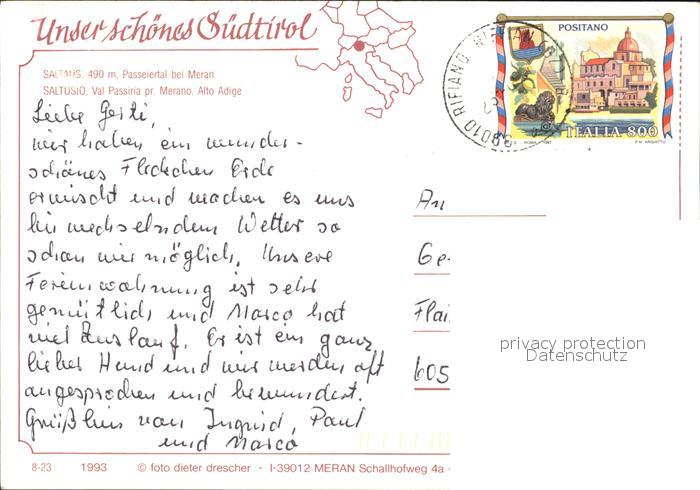 Unser schönes Südtirol
SALTAUS, 490 m, Passeiertal bei Meran
SALTUSIO, Val Passiria pr. Merano, Alto Adige
Liebe Gerti,
wir haben ein wunder-
schönes Fleckchen Erde
erwischt und machen es uns
bei wechselndem Wetter so
schön wie möglich. Unsere
Ferienwohnung ist sehr
gemütlich und Marco hat
viel Auslauf. Er ist ein ganz
lieber Hund und wir werden oft
angesprochen und bewundert.
Grüßlein von Ingrid, Paul
und Marco
8-23 1993 © foto dieter drescher - I-39012 MERAN Schallhofweg 4a
POSITANO
ITALIA 800
39010 RIFIANO RIFFIAN
An
Ge
Flai
605
privacy protection
Datenschutz